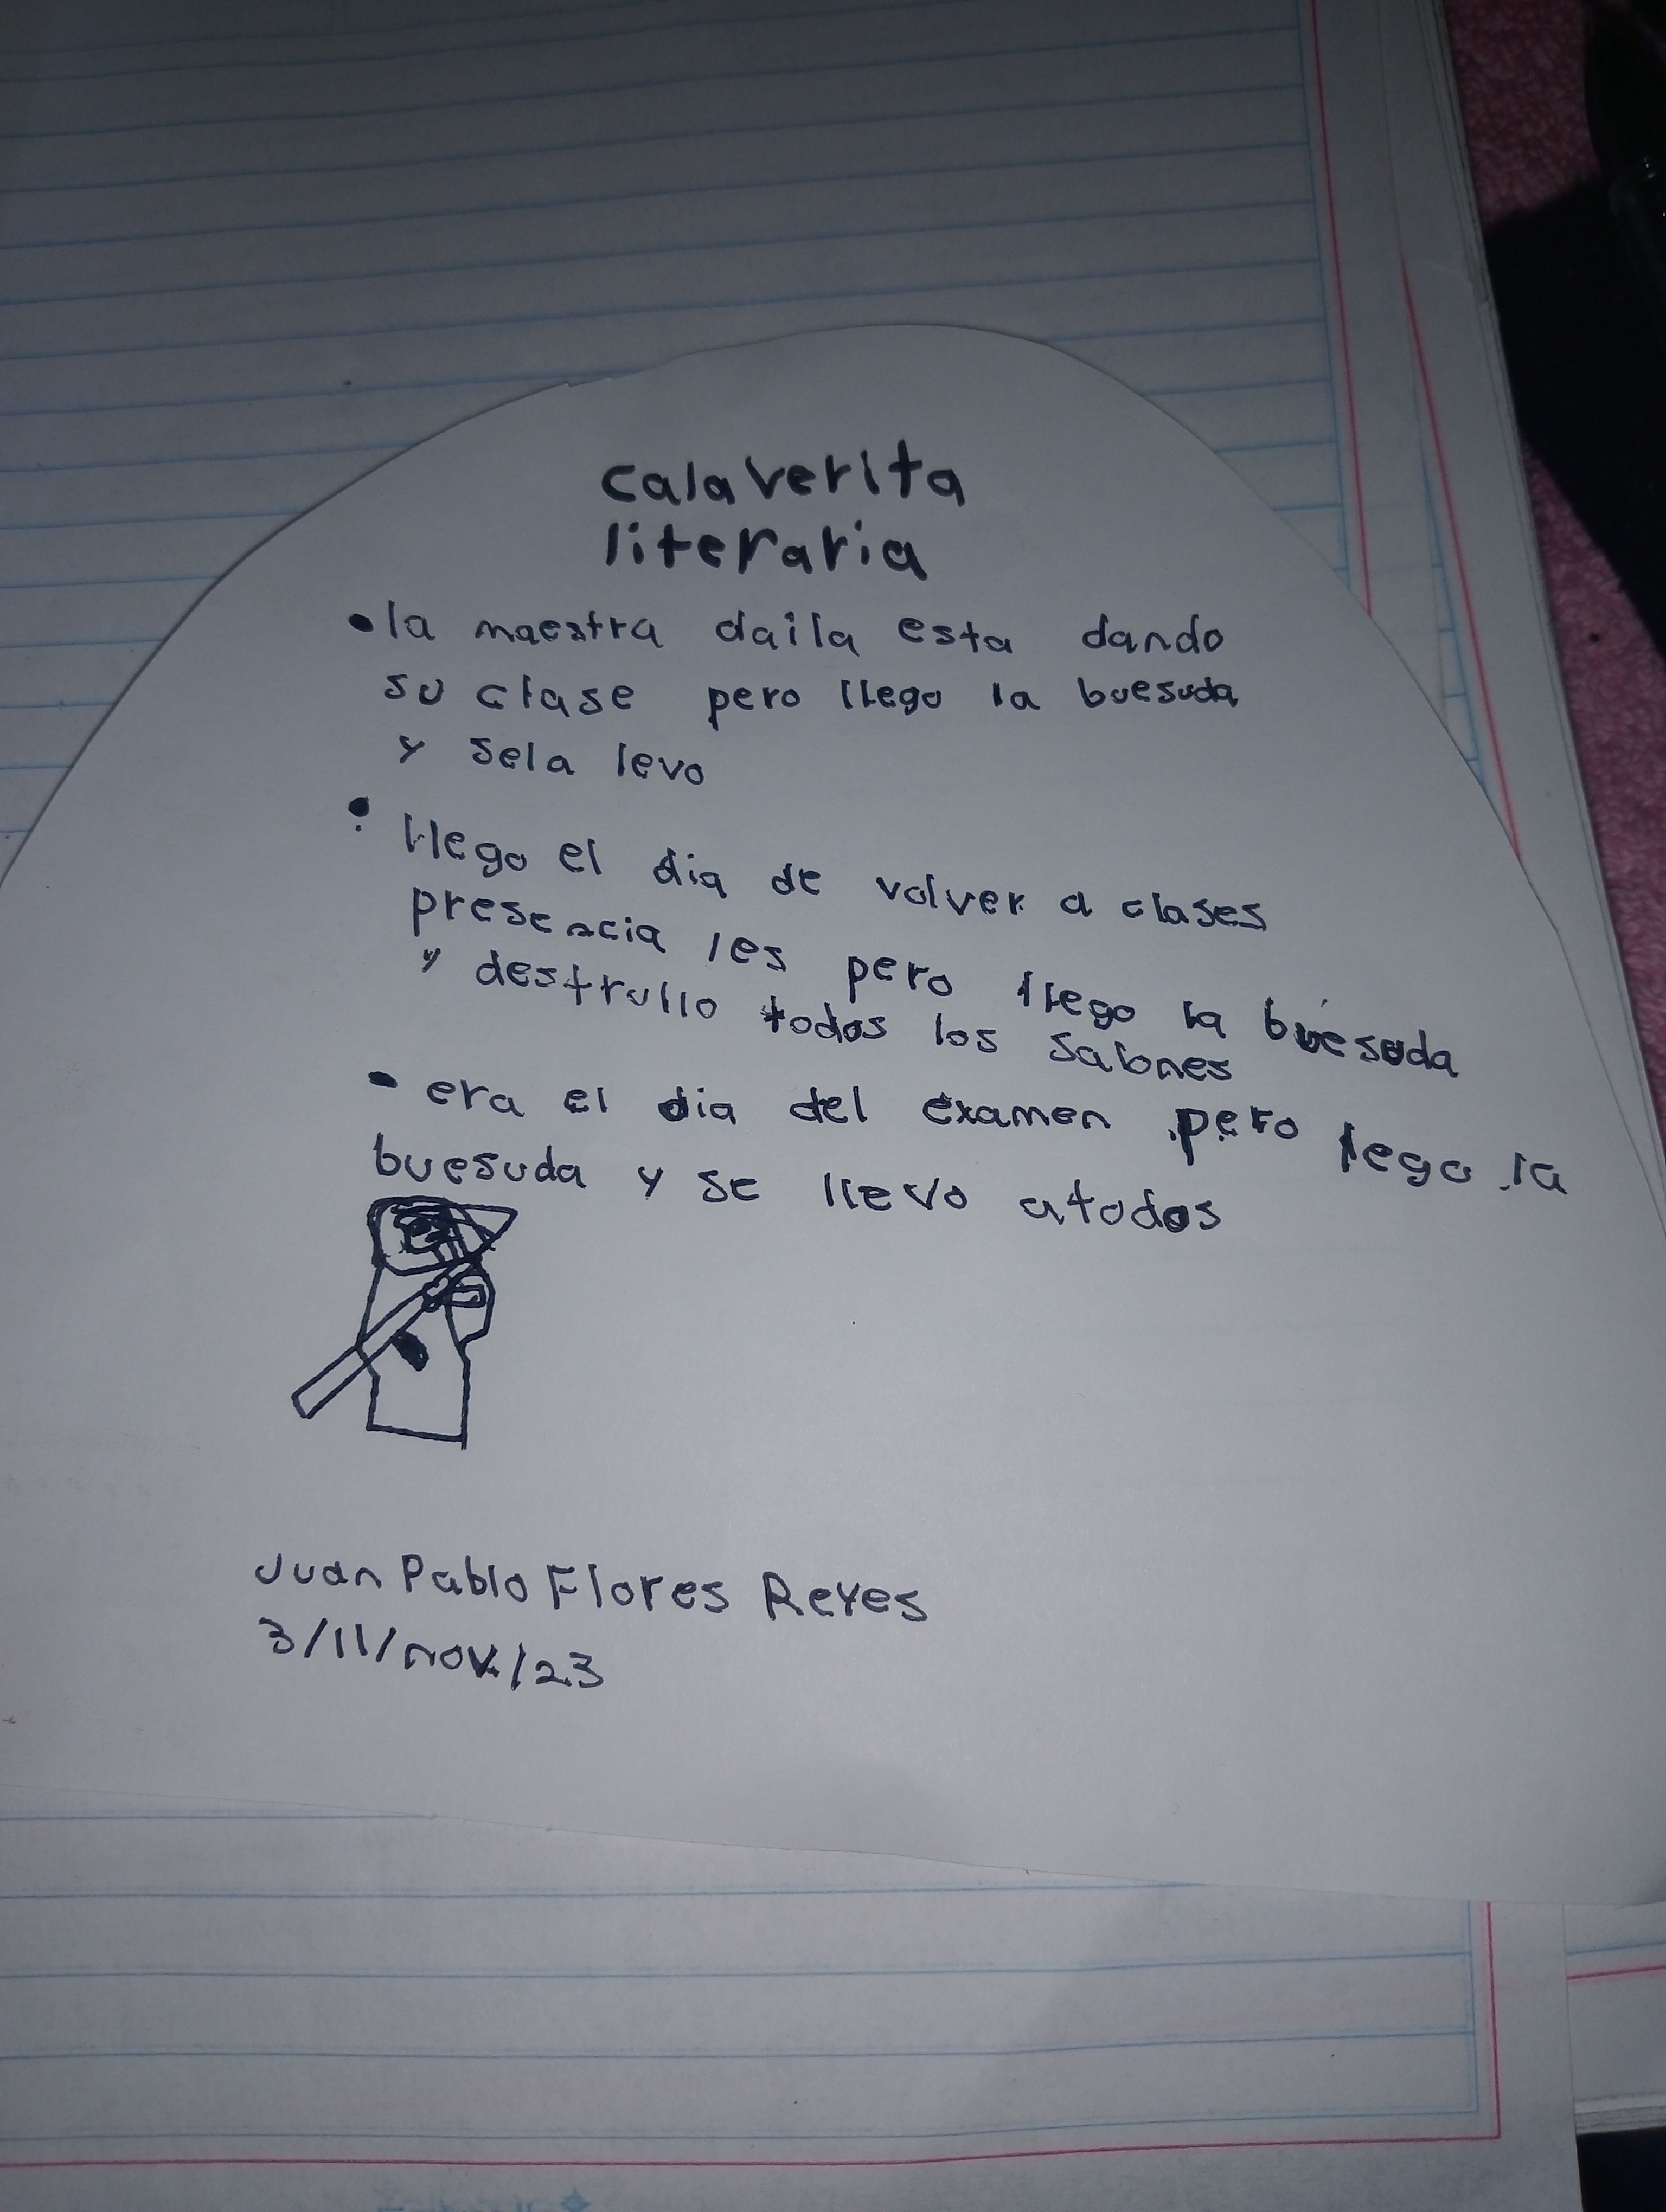 calaverita
literaria
• la maestra daila esta dando
su clase pero llego la buesuda
y sela levo
• llego el dia de volver a clases
presencia les pero llego la buesuda
y destrullo todos los salones
• era el dia del examen pero lego la
buesuda y se llevo atodos
Juan Pablo Flores Reyes
3/11/nov/23